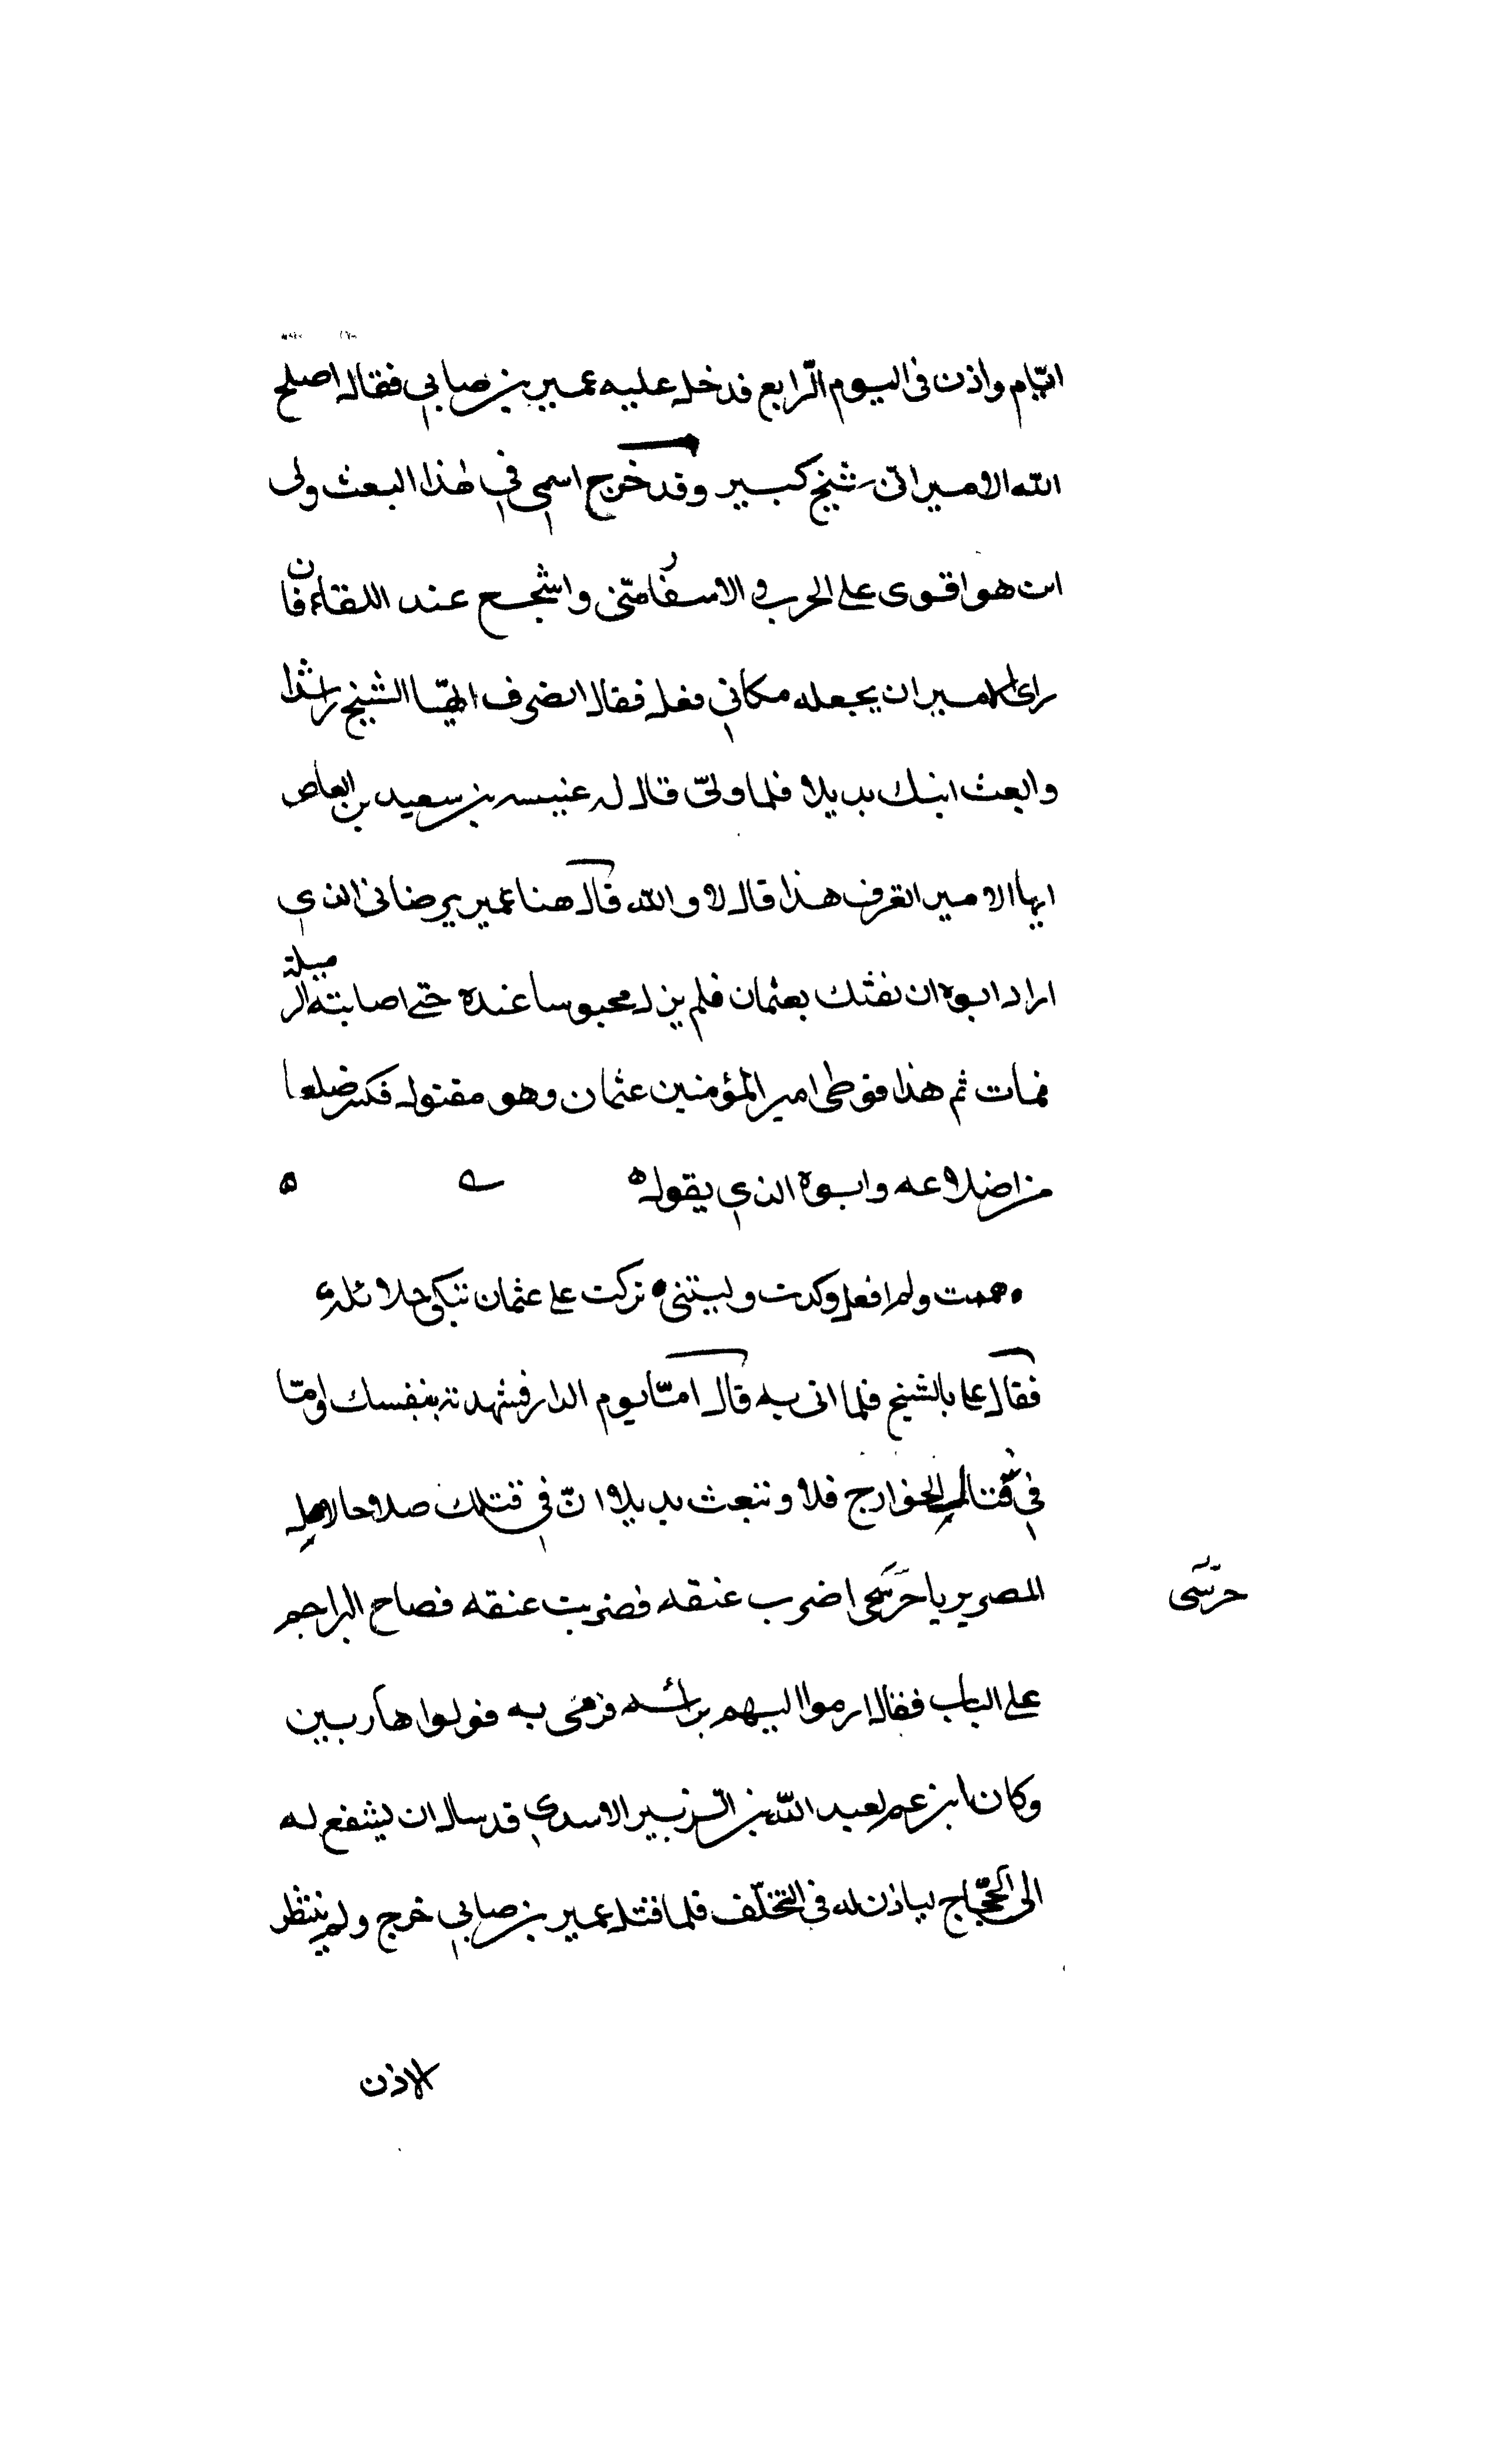 ايّام واذن في اليوم الرّابع فدخل عليه عمير بن ضابي فقال اصلح
الله الامير انّي شيخ كبير وقد خرج اسمي في هذا البعث ولى
ابن هو اقوى على الحرب والاسفار منّي واشجع عند اللقاء فان
راى الامير ان يجعله مكاني فعل فقال انصرف ايّها الشيخ راشدا
وابعث ابنك بديلا فلما ولّى قال له عنبسه بن سعيد بن العاص
ايها الامير اتعرف هذا قال لا والله قال هذا عمير بن ضابئ الذي
اراد ابوه ان يفتك بعثمان فلم يزل محبوسا عنده حتى اصابته الدبيلة
فمات ثم هذا فوطى امير المؤمنين عثمان وهو مقتول فكسر ضلعا
من اضلاعه وابوه الذي يقول
هممت ولم افعل وكدت وليتني تركت على عثمان تبكى حلائله
فقال على بالشيخ فلما اتى به قال امّا يوم الدار فشهدته بنفسك وامّا
في قتال الخوارج فلا وتبعث بديلا انّ في قتلك صلاحا لاهل
المصرين يا حرسى اضرب عنقه فضربت عنقه فصاح البراجم
على الباب فقال ارموا اليهم براسه فرمى به فولوا هاربين
وكان ابن عم لعبد الله بن الزّبير الاسدي قد سال ان يشفع له
الى الحجّاج لياذن له في التخلّف فلما قتل عمير بن ضابي خرج ولم ينتظر
حرسى
الاذن